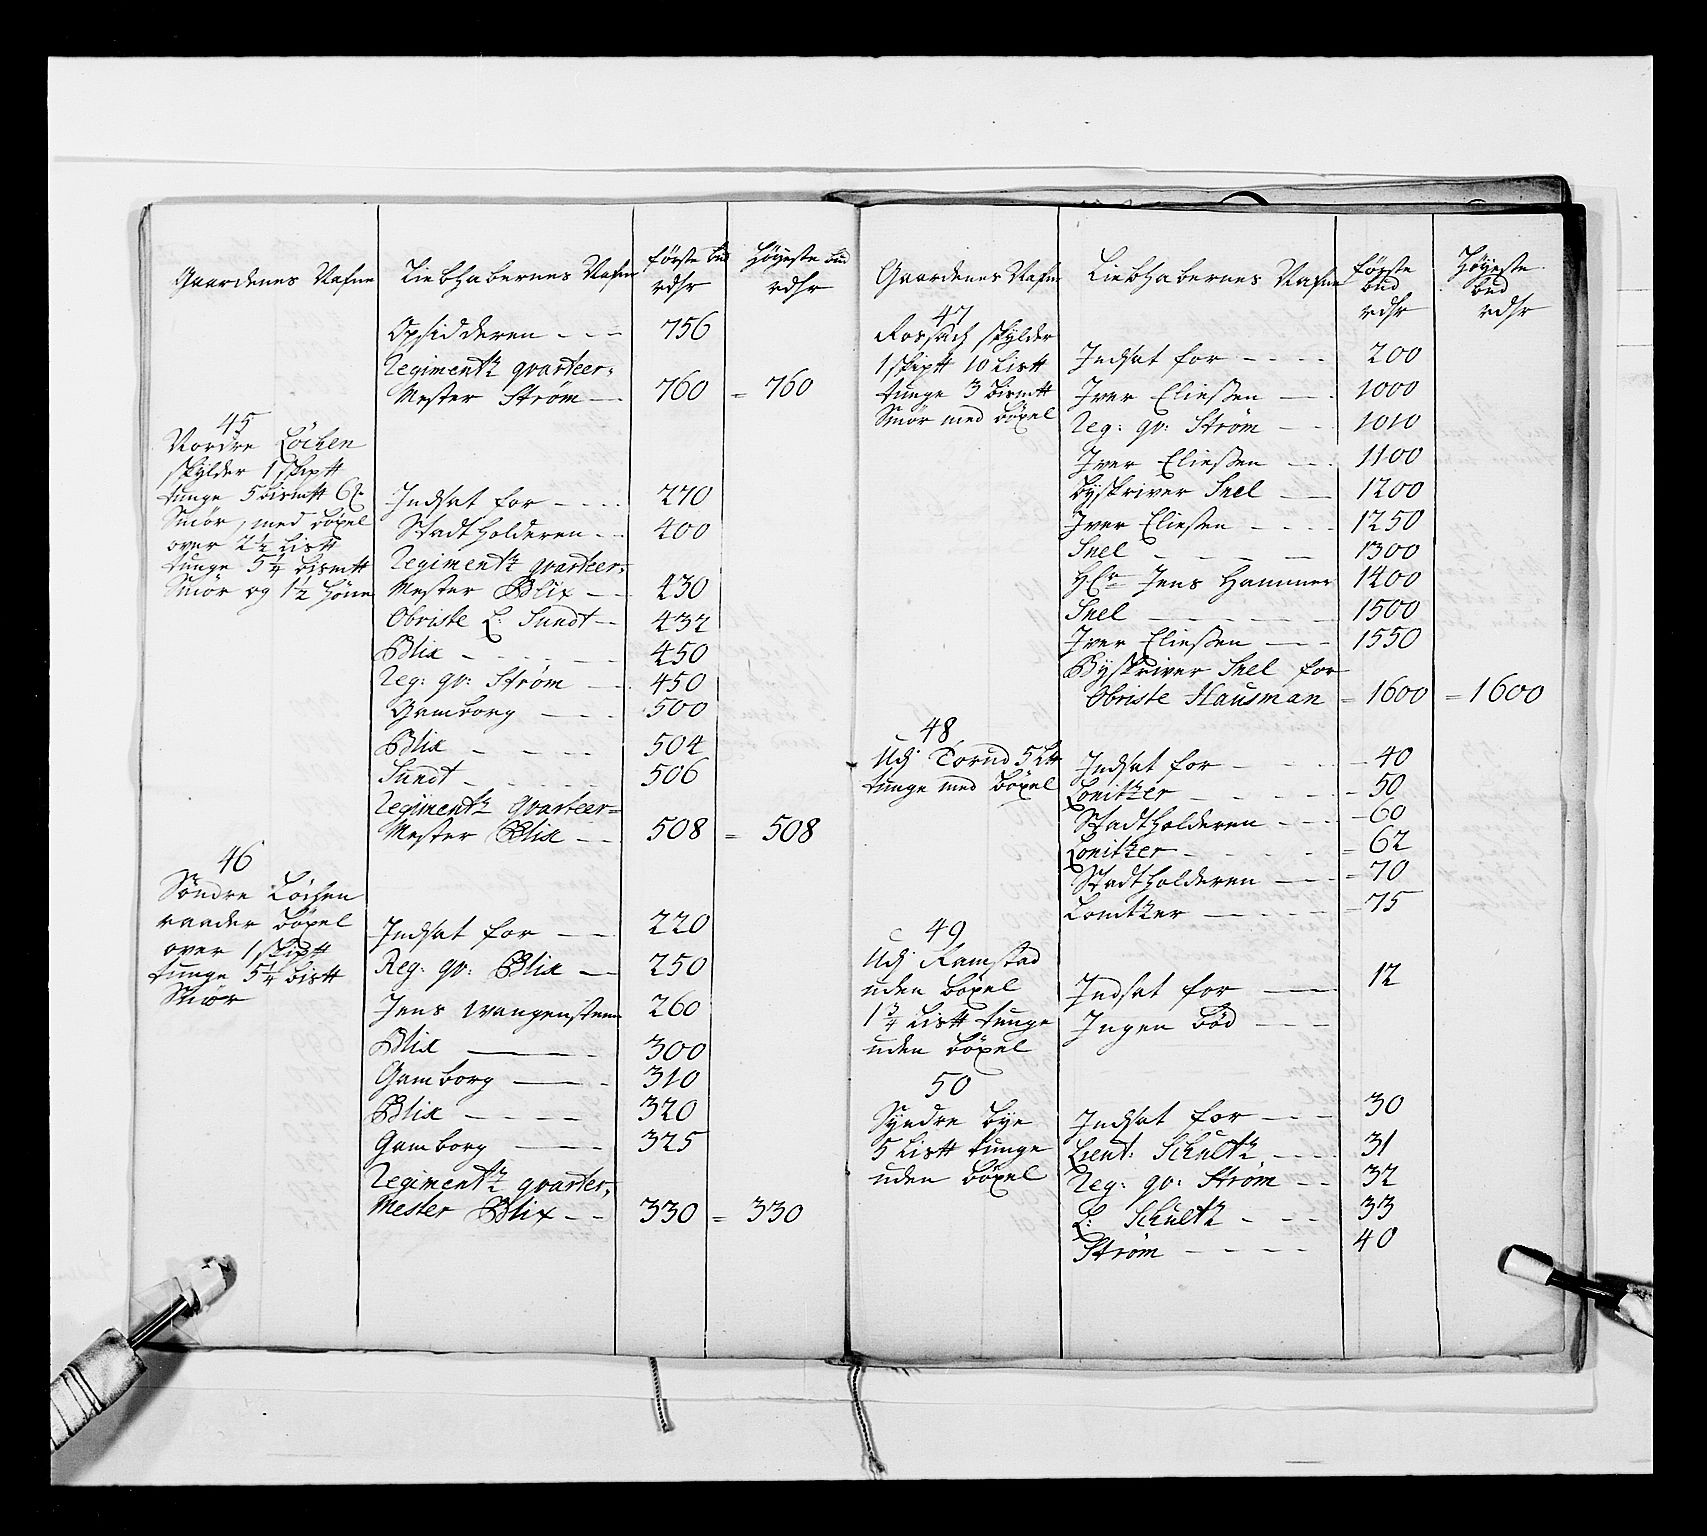 Gaardenes Nafne
Liebhabernes Nafne
første bud
rdhr
Høyeste bud
rdhr
Opsidderen - - - 756
Regimentz qvarteer:
Mester Strøm - - 760 = 760
45
Nordre Löchen
skylder 1 skip℔
tunge 5 bism℔
Smør, med böxel
over 2½ Lis℔
tunge 5¼ bism℔
Smör og 1½ Høne
Indsat for - - - - 270
Stadtholderen - - 400
Regimentz qvarteer:
Mester Blix - - 430
Obriste L: Sundt - - 432
Blix - - - - - 450
Reg: qv: Strøm - - 450
Gamborg - - - 500
Blix - - - - 504
Sundt - - - - - 506
Regimentz Qvarteer=
Mester Blix - - 508 = 508
46
Söndre Löchen
raader böxel
over 1 skip℔
tunge 5¼ bis℔
Smör
Indsat for - - 220
Reg: qv: Blix - - 250
Jens Wangensteen 260
Blix - - - 300
Gamborg - - - 310
Blix - - - - 320
Gamborg - - - 325
Regimentz qvarteer,
Mester Blix - - 330 = 330
Gaardenes Nafne
Liebhabernes Nafne
første
bud
rdhr
Høyeste
bud
rdhr
47
Rossach skylder
1 skip℔ 10 Lis℔
tunge 3 bism℔
Smör med böxel
Indsat for - - - - 200
Iver Eliesen - - 1000
Reg: qv: Strøm - - 1010
Iver Eliesen - - - 1100
Byskriver Snel - - 1200
Iver Eliesen - - - - 1250
Snel - - - - - 1300
Hr Jens Hammer 1400
Snel - - - - - - 1500
Iver Eliesen - - - 1550
Byskriver Snel for
Obriste Hausman = 1600 = 1600
48
Udj Tornd 5 L℔
tunge med böxel
Indsat for - - - - 40
Lonitzer - - - - - 50
Stadtholderen - - - 60
Lonitzer - - - - - 62
Stadtholderen - - - 70
Lonitzer - - - - 75
49
Udj Ramstad
uden böxel
1¾ Lis℔ tunge
uden böxel
Indsat for - - 12
Ingen bød - - -
50
Syndre bye
5 Lis℔ tunge
uden böxel
Indsat for - - - 30
Lieut: Schultz - - - 31
Reg: qv: Strøm - - 32
L: Schultz - - - 33
Strøm - - - - 40